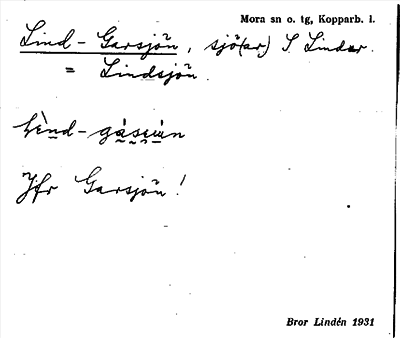 Mora sn o. tg, Kopparb. l.
Lind-Garsjön, sjö(ar) S Lindar.
= Lindsjön.
Jfr Garsjön!
Bror Lindén 1931